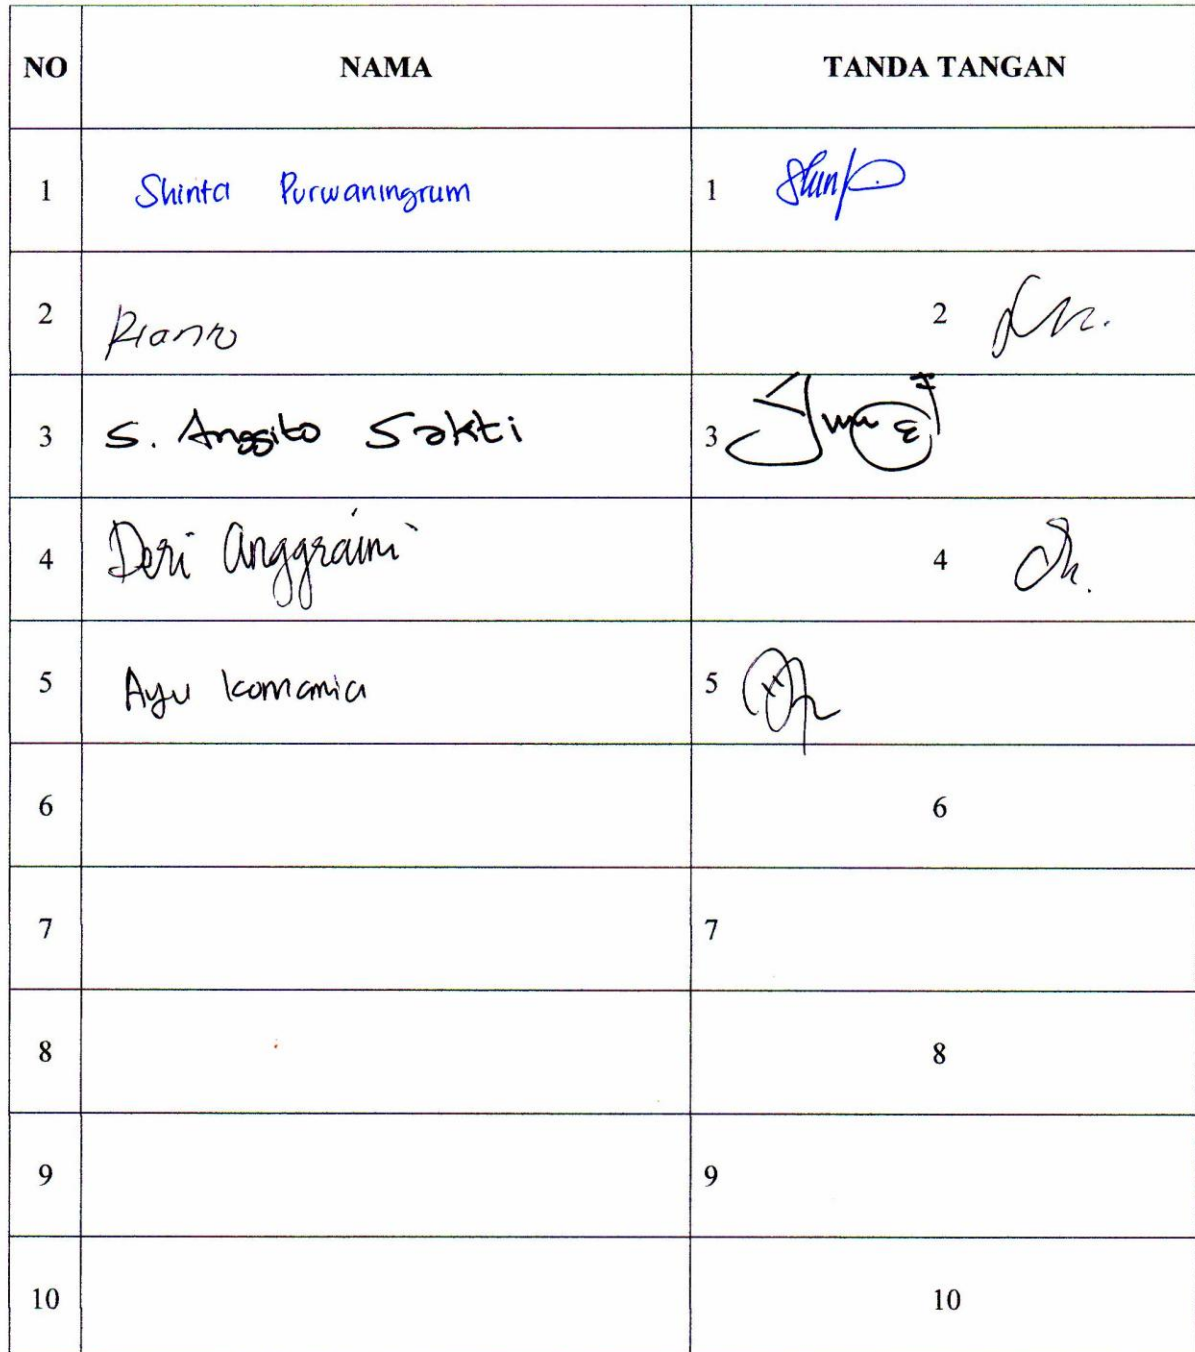 NO NAMA TANDA TANGAN
1 Shinta Purwaningrum 1
2 2
3 S. Anggito Sakti 3
4 Deri Anggraini 4
5 Ayu 5
6 6
7 7
8 8
9 9
10 10